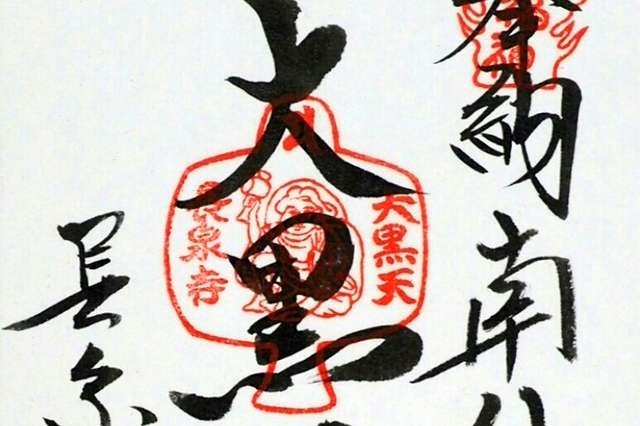 奉納
南
大黒
長泉寺
大黒天
長泉